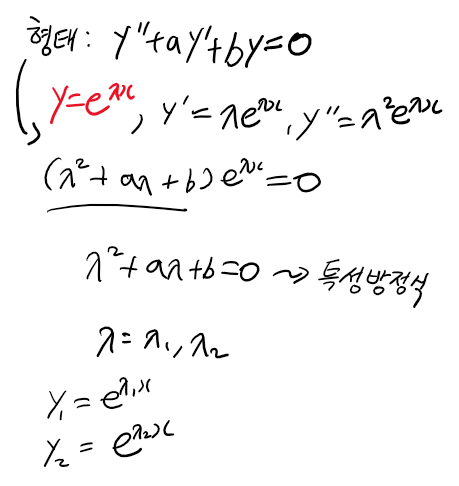 형태: y''+ay'+by=0
y=e^{λx}, y'=λe^{λx}, y''=λ²e^{λx}
(λ²+aλ+b)e^{λx}=0
λ²+aλ+b=0 ⇝ 특성방정식
λ=λ₁,λ₂
y₁=e^{λ₁x}
y₂=e^{λ₂x}